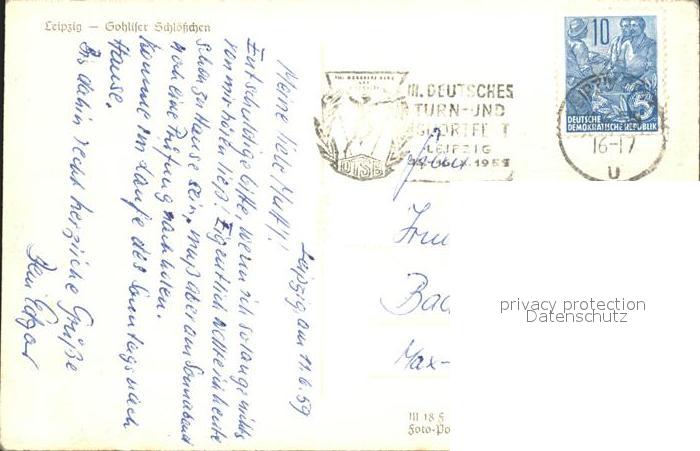 Leipzig — Gohliser Schlößchen
Leipzig am 11.6.59
Meine liebe Mutti!
Entschuldige bitte, wenn ich so lange nichts
von mir hören ließ! Eigentlich wollte ich heute
schon zu Hause sein, muß aber am Sonnabend
noch eine Prüfung nachholen.
Komme im Laufe des Sonntags nach
Hause.
Bis dahin recht herzliche Grüße
Dein Edgar
III. DEUTSCHES
TURN-UND
SPORTFEST
LEIPZIG
1959
DTSB
10
DEUTSCHE
DEMOKRATISCHE REPUBLIK
16-17
u
Frau
Bad
Max-
III 18 5
Foto-Po
privacy protection
Datenschutz